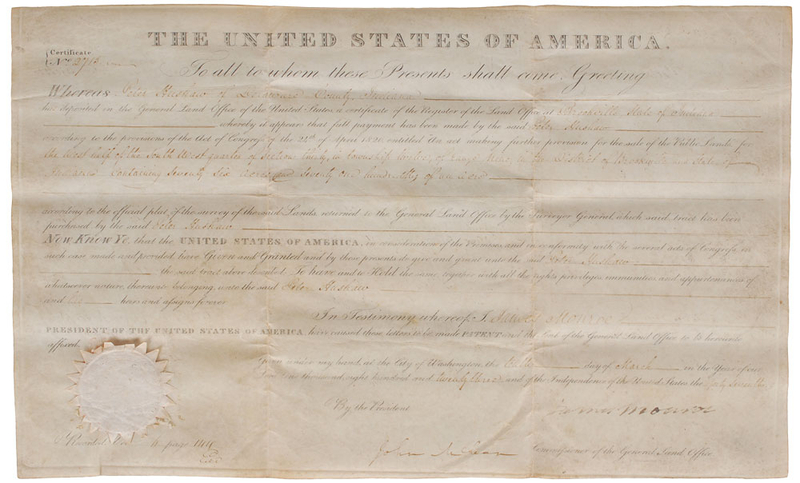 THE UNITED STATES OF AMERICA.
Certificate
No.
To all to whom these Presents shall come, Greeting
Whereas Peter of Delaware County Indiana
ha deposited in the General Land Office of the United States a certificate of the Register of the Land Office at Brookville State of Indiana
whereby it appears that full payment has been made by the said Peter
according to the provisions of the Act of Congress of the 24th of April 1820, entitled An act making further provision for the sale of the Public Lands, for
the West half of the South West quarter of Section in Township of range in the District of
containing Seventy Six acres and Seventy one hundredths of an acre
according to the official plat, of the survey of the said Lands, returned to the General Land Office by the Surveyor General, which said tract has been
purchased by the said Peter
Now Know Ye, that the UNITED STATES OF AMERICA, in consideration of the Premises and in conformity with the several acts of Congress, in
such case made and provided, have Given and Granted and by these presents do give and grant unto the said Peter
the said tract above described. To have and to Hold the same, together with all the rights, privileges, immunities and appurtenances of
whatsoever nature, thereunto belonging, unto the said Peter
and his heirs and assigns forever
In Testimony whereof, I, James Monroe
PRESIDENT OF THE UNITED STATES OF AMERICA, have caused these letters to be made PATENT and the Seal of the General Land Office to be hereunto
affixed.
Given under my hand, at the City of Washington, the day of March in the Year of our
Lord one thousand eight hundred and twenty three and of the Independence of the United States the forty seventh
By the President James Monroe
John McLean Commissioner of the General Land Office
Recorded page